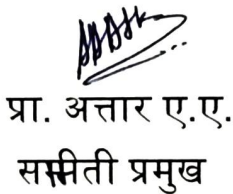 प्रा. अत्तार ए.ए.
समिती प्रमुख